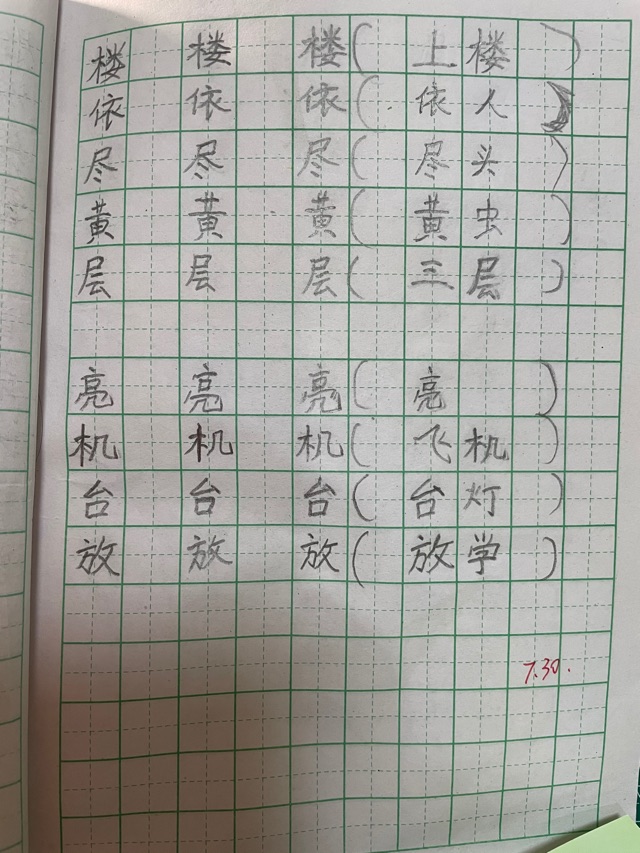 楼 楼 楼( 上楼 )
依 依 依( 依人 )
尽 尽 尽( 尽头 )
黄 黄 黄( 黄虫 )
层 层 层( 三层 )
亮 亮 亮( 亮 )
机 机 机( 飞机 )
台 台 台( 台灯 )
放 放 放( 放学 )
7.30.